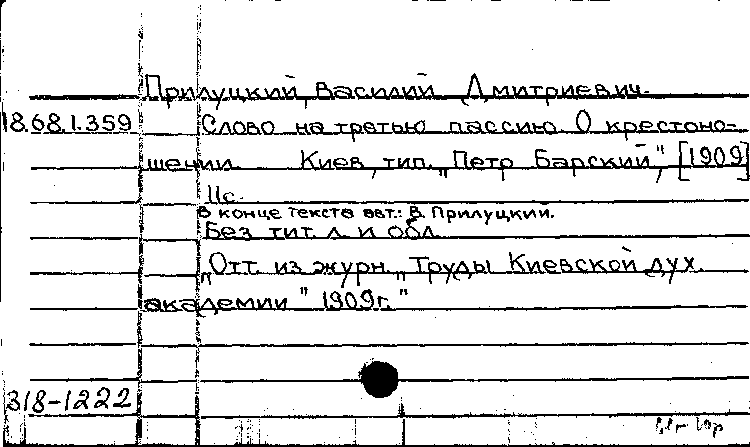 Прилуцкий, Василий Дмитриевич.
18.68.1.359 Слово на третью пассию. О крестоно-
шении. Киев, тип. „Петр Барский", [1909]
11с.
В конце текста авт.: В. Прилуцкий.
Без тит. л. и обл.
„Отт. из журн. „Труды Киевской дух.
академии " 1909г."
318-1222